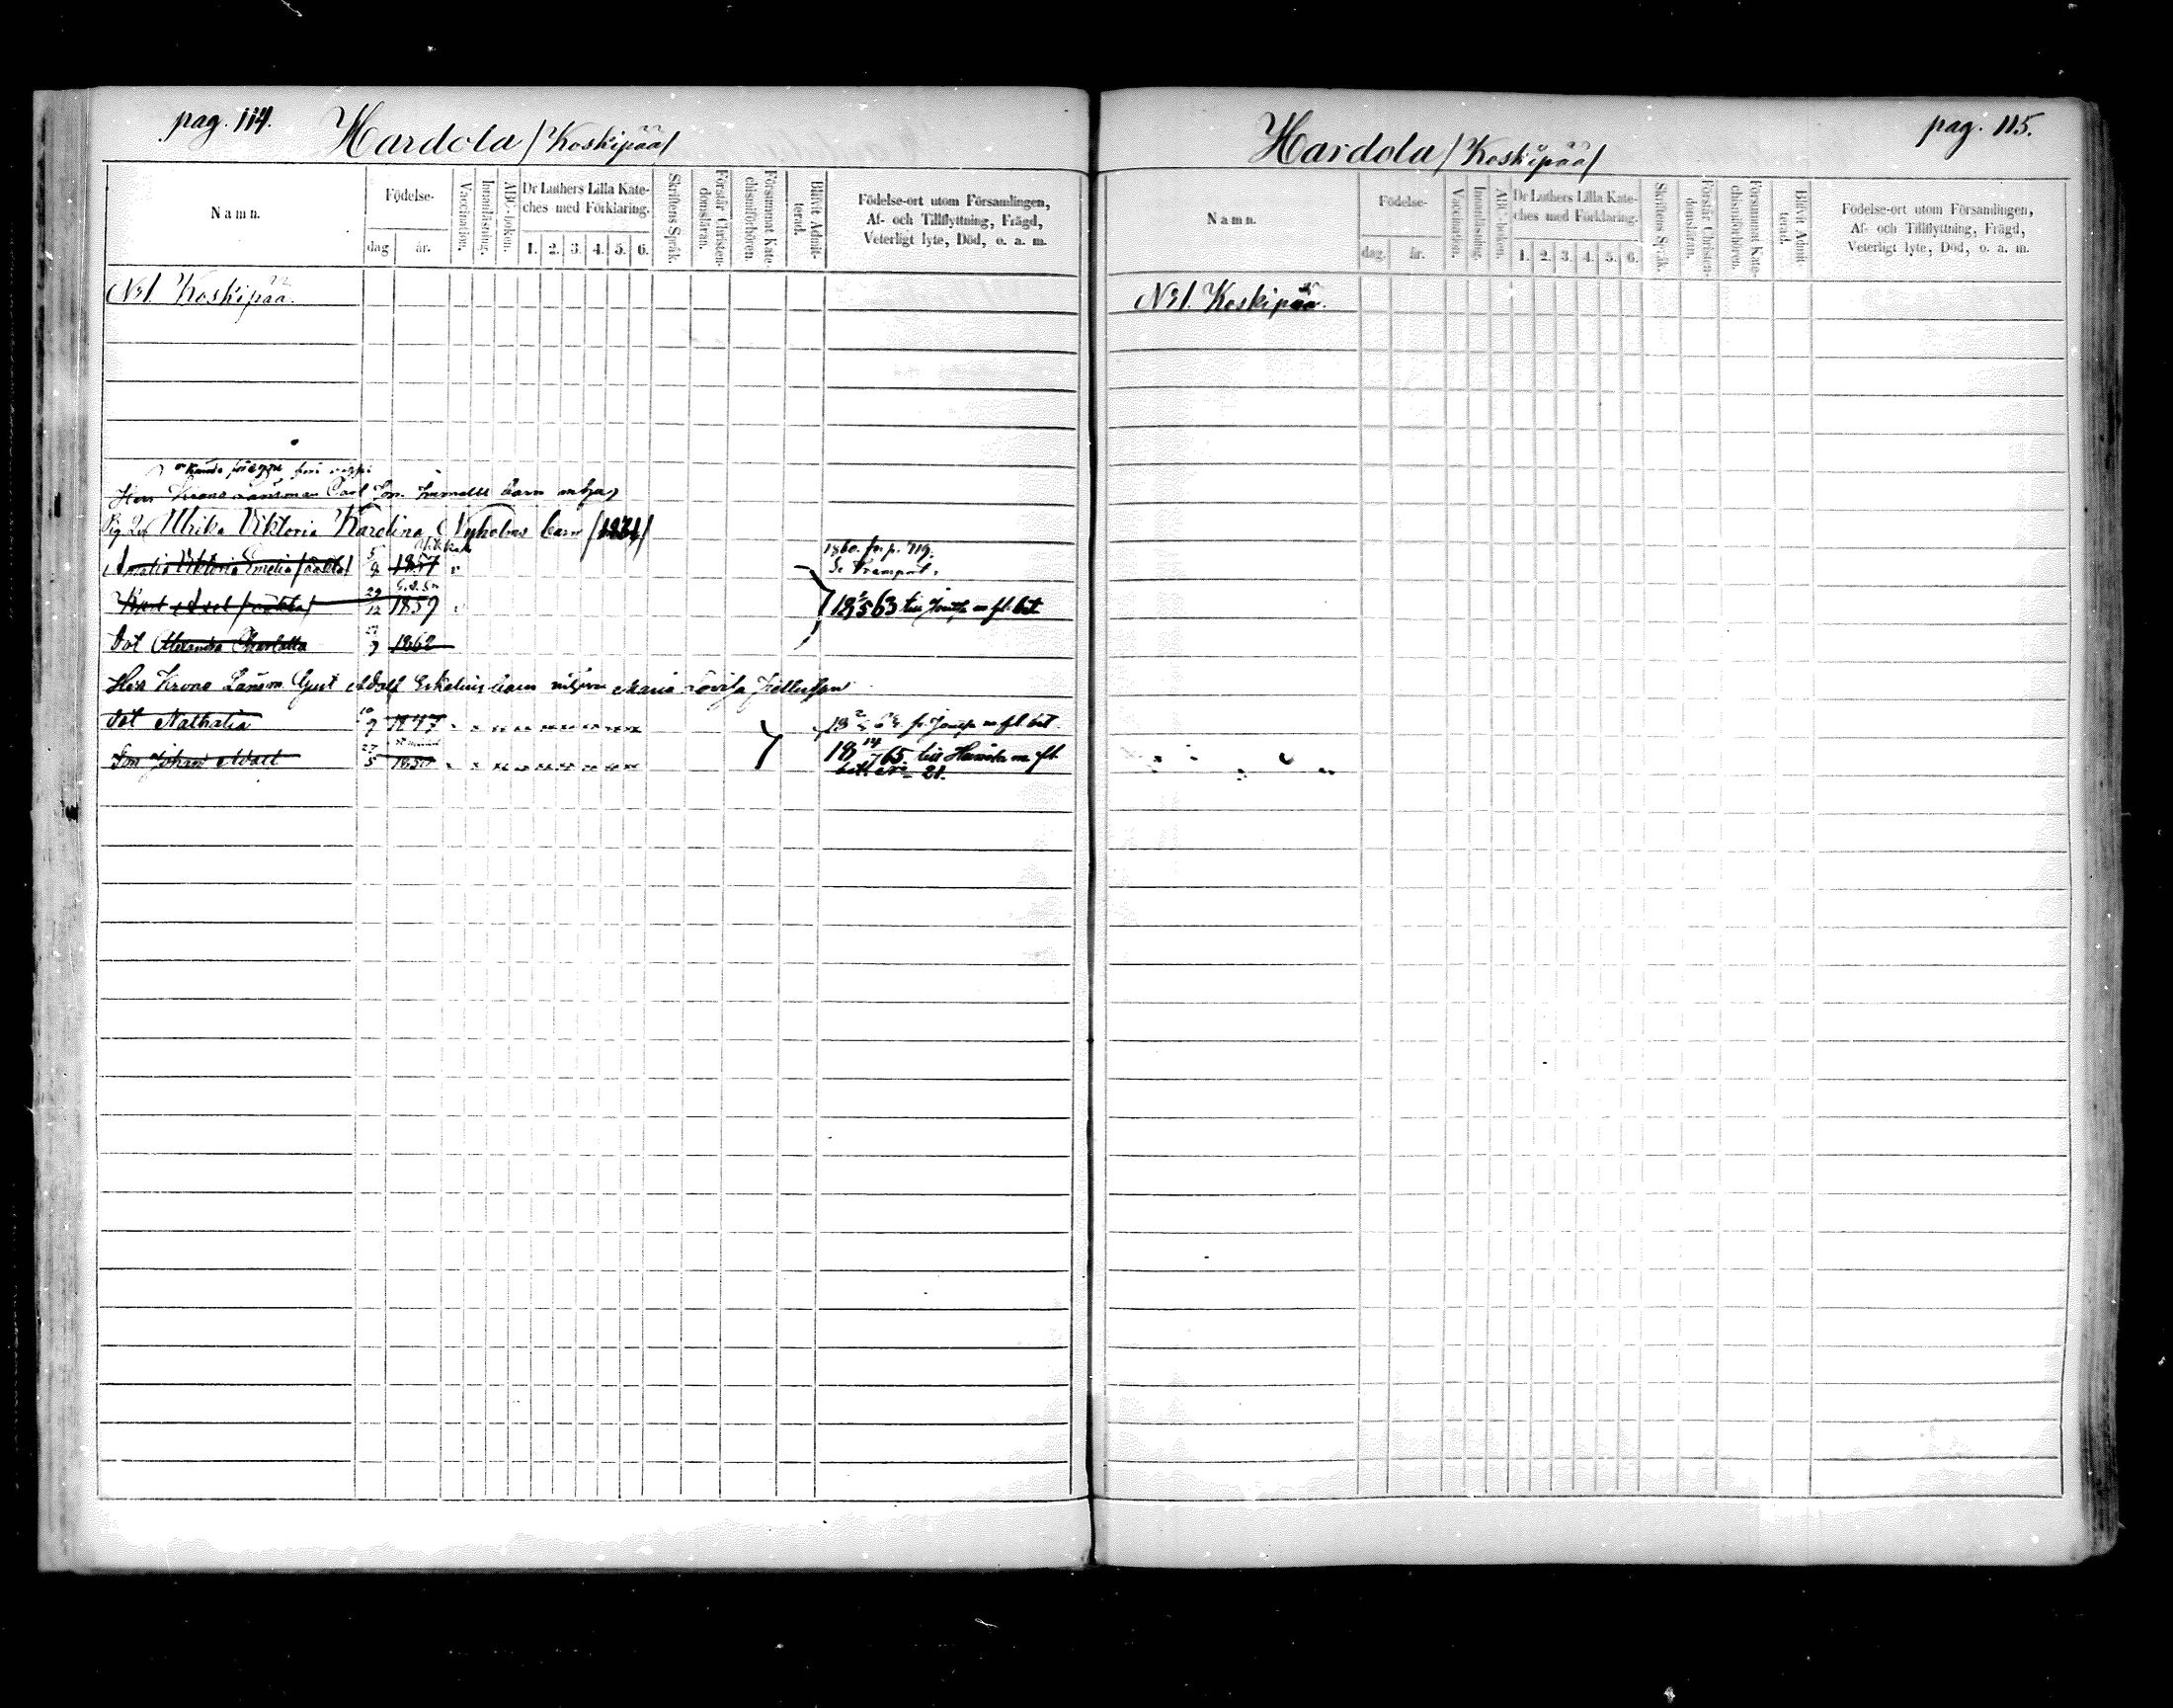 pag. 114. Hardola / Koskipää /
Namn.
Födelse-
dag
år.
Vaccination.
Innanläsning.
ABC-boken.
Dr Luthers Lilla Kate-
ches med Förklaring.
1. 2. 3. 4. 5. 6.
Skriftens Språk.
Förstår Christen-
domsläran.
Försummat Kate-
chismiförhören.
Blifvit Admit-
terad.
Födelse-ort utom Församlingen,
Af- och Tillflyttning, Frägd,
Veterligt lyte, Död, o. a. m.
No 1. Koskipää.
Herr Krono Länsman Carl barn
Ulrika Viktoria Karolina Nyholms barn
Amalia Viktoria Emelia 5/9 1857 1860. fr. p. 719.
Karl Axel 29/12 1859 63 till m fl. bet
Dot Alexandra Charlotta 7 1862
Herr Krono Länsm Gust Adolf barn Maria Lovisa
Dot Nathalia 10/9 1847 m fl. bet.
Son Johan 27/5 1850 18 14/7 65. till m fl.
21.
Hardola / Koskipää / pag. 115.
Namn.
Födelse-
dag.
år.
Vaccination.
Innanläsning.
ABC-boken.
Dr Luthers Lilla Kate-
ches med Förklaring.
1. 2. 3. 4. 5. 6.
Skriftens Språk.
Förstår Christen-
domsläran.
Försummat Kate-
chismiförhören.
Blifvit Admit-
terad.
Födelse-ort utom Församlingen,
Af- och Tillflyttning, Frägd,
Veterligt lyte, Död, o. a. m.
No 1. Koskipää.